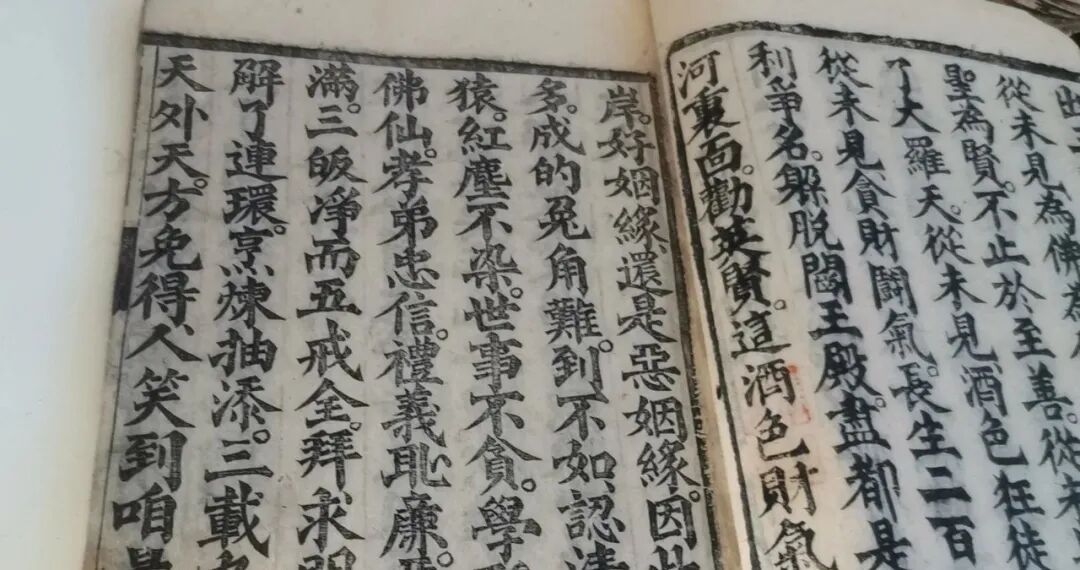 從未見為佛為
聖為賢。不止於至善。從未
了大羅天。從未見酒色狂徒
從未見貪財鬪氣。長生二百
利爭名。躱脫閻王殿。盡都是
河裏面。勸英賢。這酒色財氣
岸。好姻緣還是惡姻緣。因此
多。成的免角難到。不如認清
猿。紅塵不染。世事不貪。學
佛仙。孝弟忠信。禮義恥廉。
滿。三皈淨而五戒全。拜求明
解了連環。烹煉抽添。三載
天外天。方免得人笑到咱